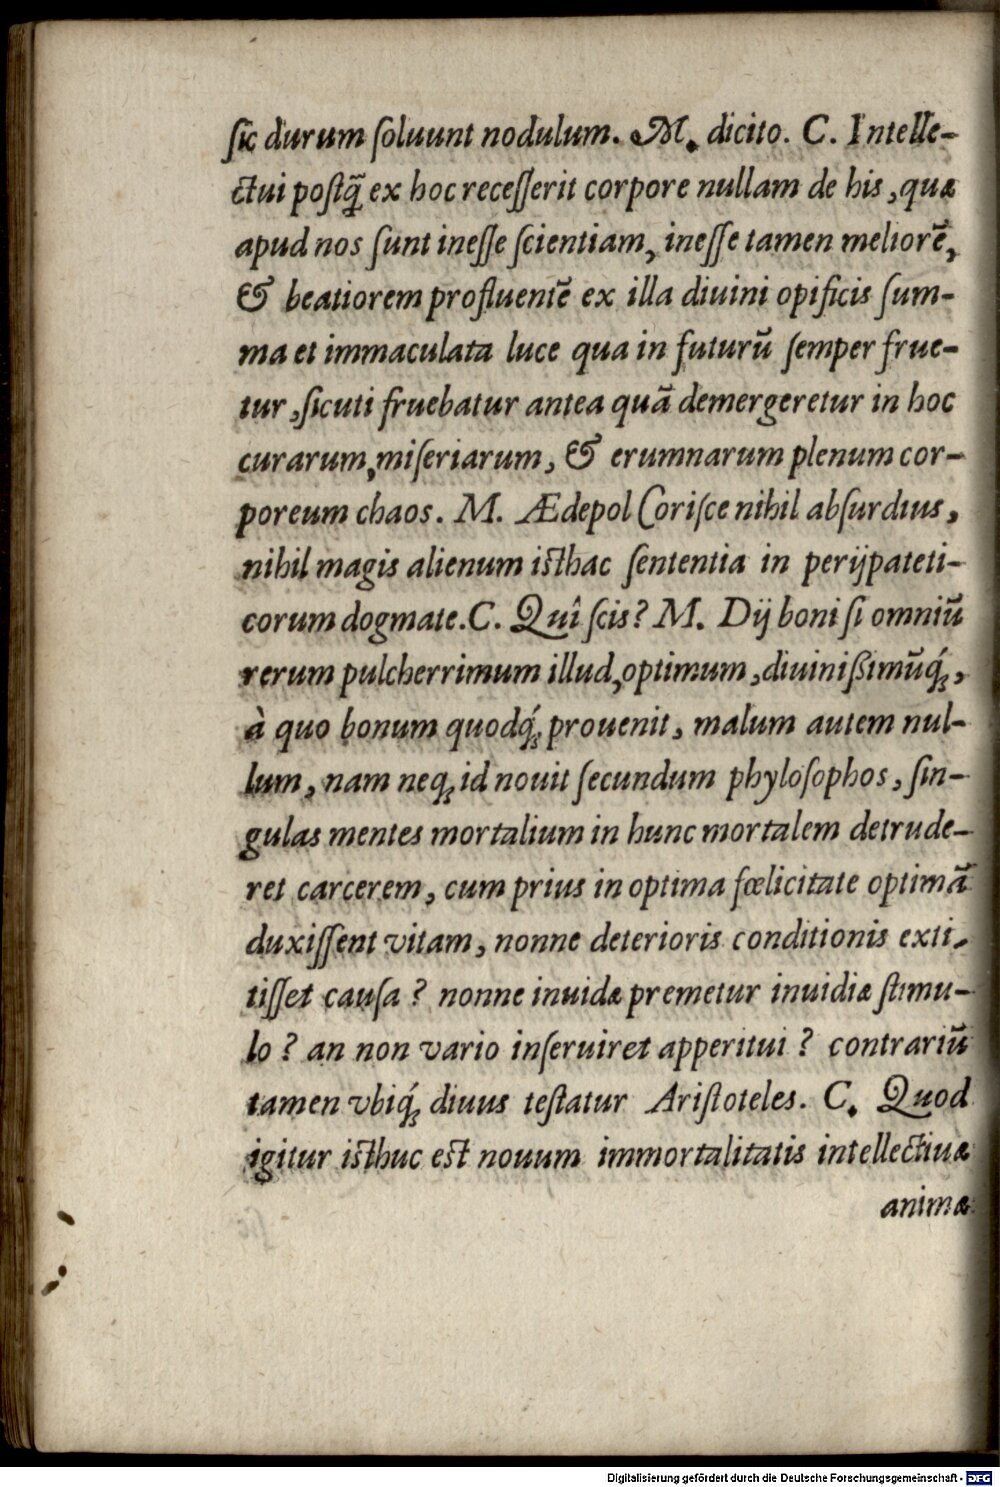 ſic durum ſoluunt nodulum. M. dicito. C. Intelle-
ctui poſtq̃ ex hoc receſſerit corpore nullam de his, quæ
apud nos ſunt ineſſe ſcientiam, ineſſe tamen meliorẽ,
& beatiorem profluentẽ ex illa diuini opificis ſum-
ma et immaculata luce qua in futurũ ſemper frue-
tur, ſicuti fruebatur antea quã demergeretur in hoc
curarum, miſeriarum, & erumnarum plenum cor-
poreum chaos. M. Ædepol Coriſce nihil abſurdius,
nihil magis alienum iſthac ſententia in perijpateti-
corum dogmate. C. Quî ſcis? M. Dij boni ſi omniũ
rerum pulcherrimum illud, optimum, diuinißimũq́ꝫ,
à quo bonum quodq́ꝫ prouenit, malum autem nul-
lum, nam neqꝫ id nouit ſecundum phyloſophos, ſin-
gulas mentes mortalium in hunc mortalem detrude-
ret carcerem, cum prius in optima fœlicitate optimã
duxiſſent vitam, nonne deterioris conditionis exti-
tiſſet cauſa? nonne inuidæ premetur inuidiæ ſtimu-
lo? an non vario inſeruiret apperitui? contrariũ
tamen vbiq́ꝫ diuus teſtatur Ariſtoteles. C. Quod
igitur iſthuc eſt nouum immortalitatis intellectiuæ
animæ
Digitalisierung gefördert durch die Deutsche Forschungsgemeinschaft - DFG